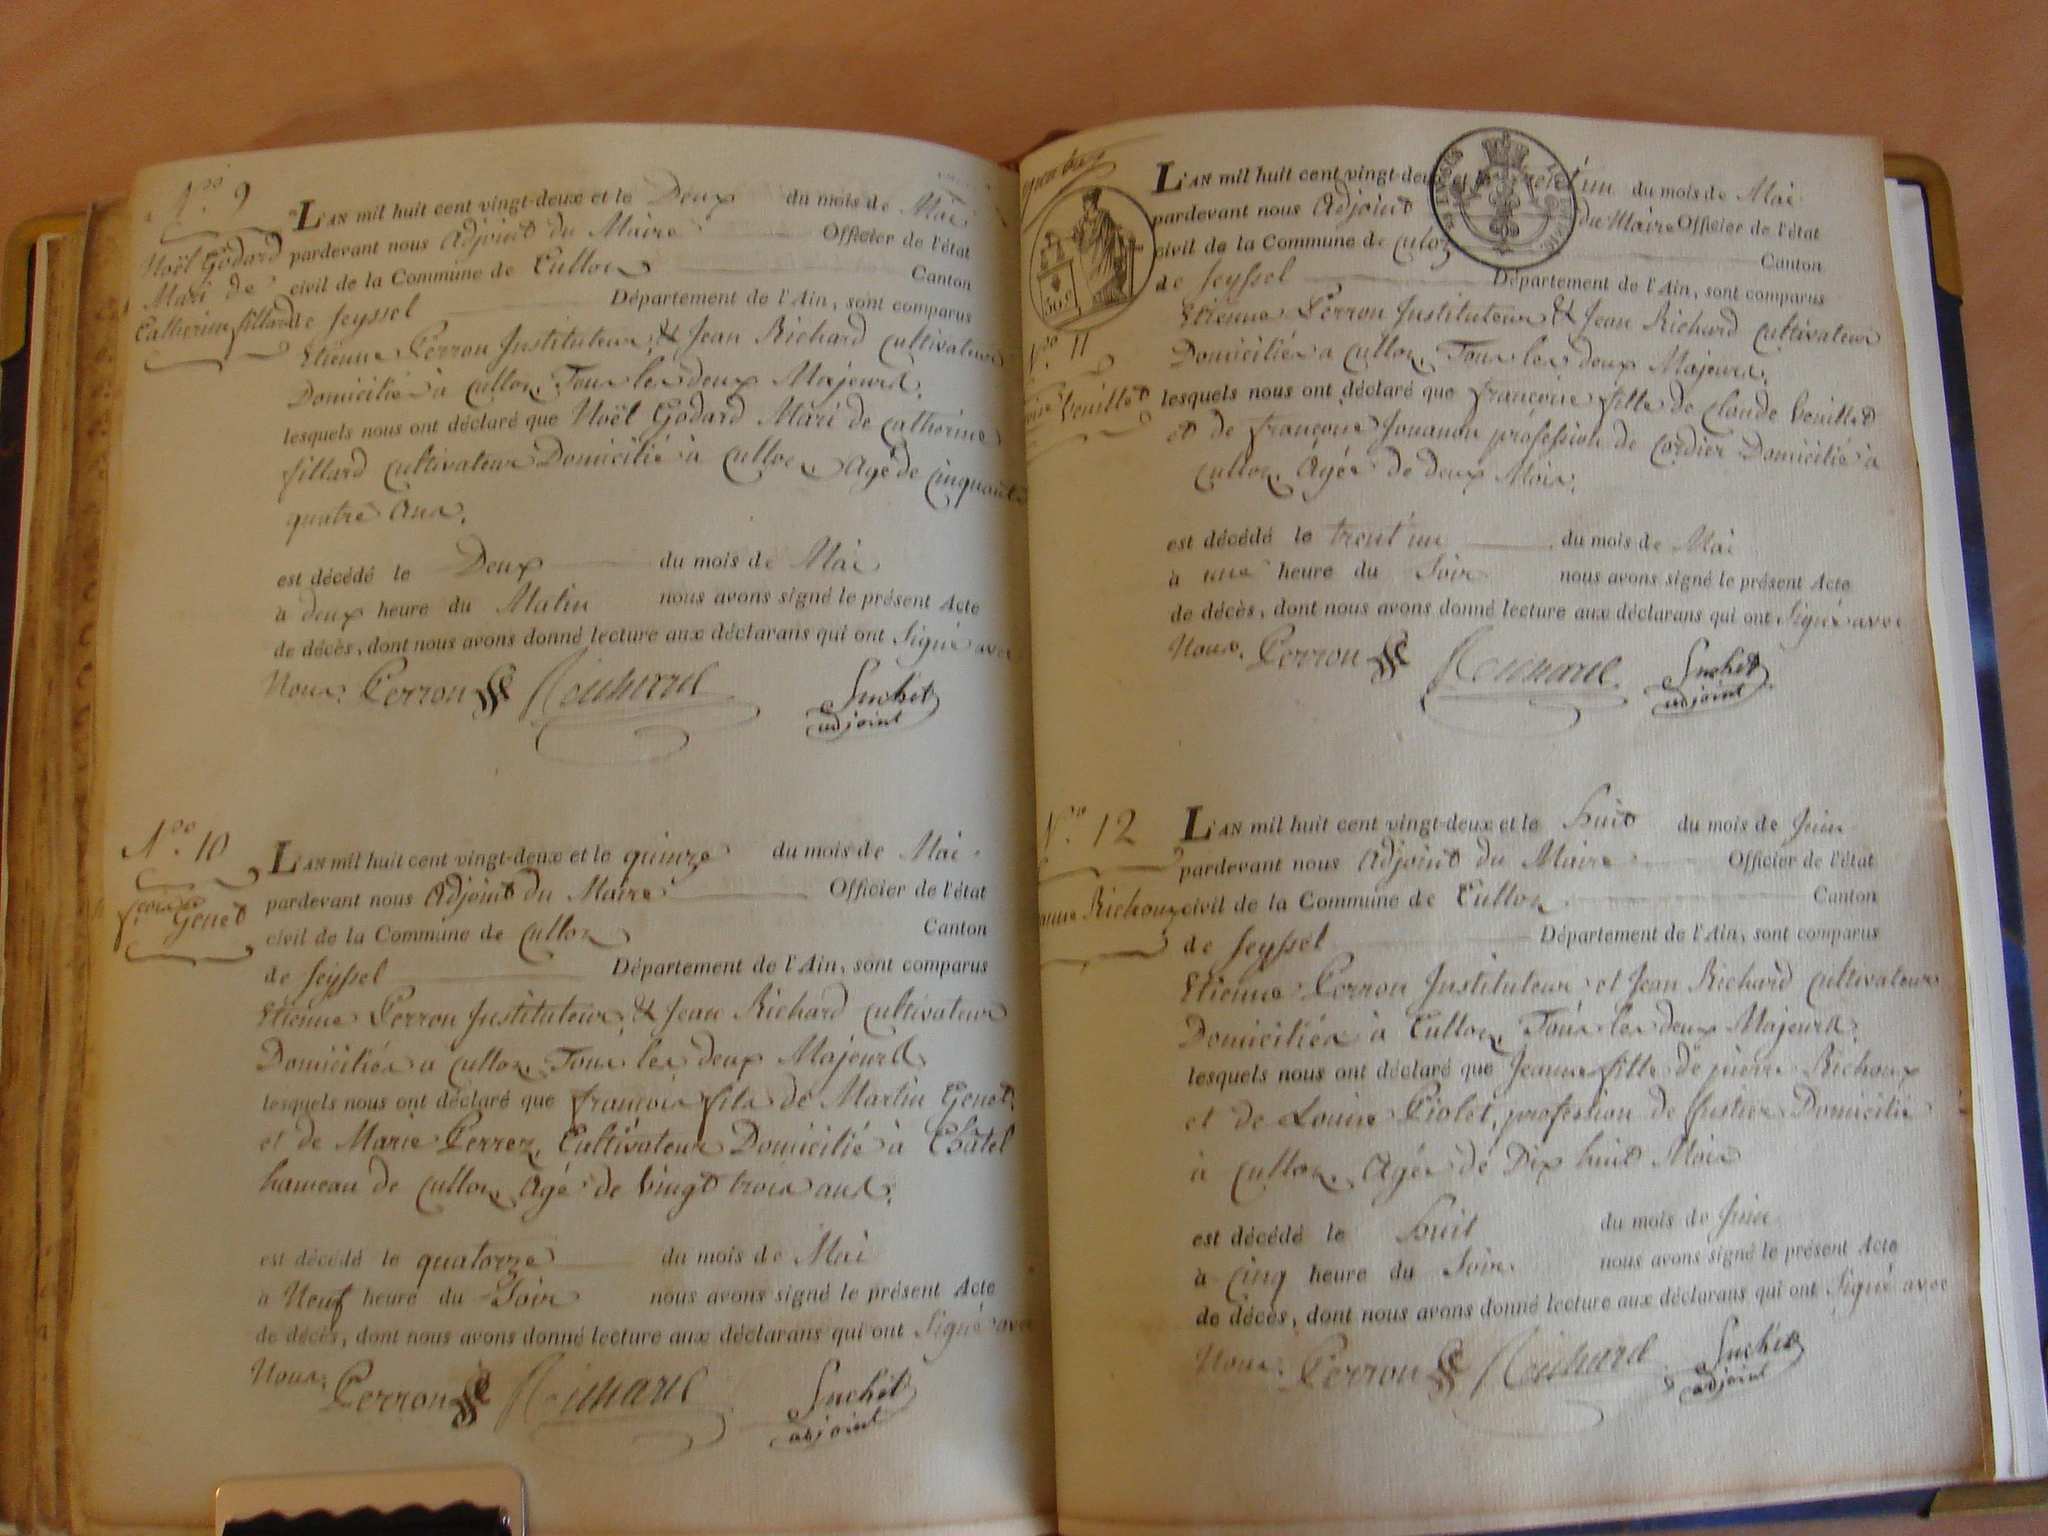 N.º 9
Noël Godard
Mari de
Catherine fillard
L'AN mil huit cent vingt-deux et le Deux du mois de Mai
pardevant nous Adjoint du Maire Officier de l'état
civil de la Commune de Culloz Canton
de Seyssel Département de l'Ain, sont comparus
Etienne Perron Instituteur & Jean Richard Cultivateur
Domicilié à Culloz, Tous les deux Majeurs,
lesquels nous ont déclaré que Noël Godard Mari de Catherine
fillard Cultivateur Domicilié à Culloz, Agé de Cinquante
quatre Ans,
est décédé le Deux du mois de Mai
à deux heure du Matin nous avons signé le présent Acte
de décès, dont nous avons donné lecture aux déclarans qui ont Signé avec
Nous, Perron Richard Suchet
adjoint
N.º 10
Genet
L'AN mil huit cent vingt-deux et le quinze du mois de Mai
pardevant nous Adjoint du Maire Officier de l'état
civil de la Commune de Culloz Canton
de Seyssel Département de l'Ain, sont comparus
Etienne Perron Instituteur & Jean Richard Cultivateur
Domiciliés a Culloz, Tous les deux Majeurs,
lesquels nous ont déclaré que françois fils de Martin Genet,
et de Marie Perrez, Cultivateur Domicilié à Châtel
hameau de Culloz, Agé de Vingt trois ans,
est décédé le quatorze du mois de Mai
à Neuf heure du Soir nous avons signé le présent Acte
de décès, dont nous avons donné lecture aux déclarans qui ont Signé avec
Nous, Perron Richard Suchet
adjoint
L'AN mil huit cent vingt-deux un du mois de Mai
pardevant nous Adjoint du Maire Officier de l'état
civil de la Commune de Culoz Canton
de Seyssel Département de l'Ain, sont comparus
50 c
N.º 11
Veuillet
Etienne Perron Instituteur & Jean Richard Cultivateur
Domiciliés a Culloz, Tous les deux Majeurs,
lesquels nous ont déclaré que françoise fille de Claude Veuillet
et de françoise Jouanon profession de Cordier Domicilié à
Culloz, Agée de deux Mois,
est décédé le trent'un du mois de Mai
à une heure du Soir nous avons signé le présent Acte
de décès, dont nous avons donné lecture aux déclarans qui ont Signé avec
Nous, Perron Richard Suchet
adjoint
N.º 12
Richoux
L'AN mil huit cent vingt-deux et le huit du mois de Juin
pardevant nous Adjoint du Maire Officier de l'état
civil de la Commune de Culloz Canton
de Seyssel Département de l'Ain, sont comparus
Etienne Perron Instituteur et Jean Richard Cultivateur
Domiciliés à Culloz, Tous les deux Majeurs,
lesquels nous ont déclaré que Jeanne fille de pierre Richoux
et de Louise Piolet, profession de Justier Domicilié
à Culloz, Agée de Dix huit Mois
est décédé le huit du mois de Juin
à Cinq heure du Soir nous avons signé le présent Acte
de décès, dont nous avons donné lecture aux déclarans qui ont Signé avec
Nous, Perron Richard Suchet
adjoint